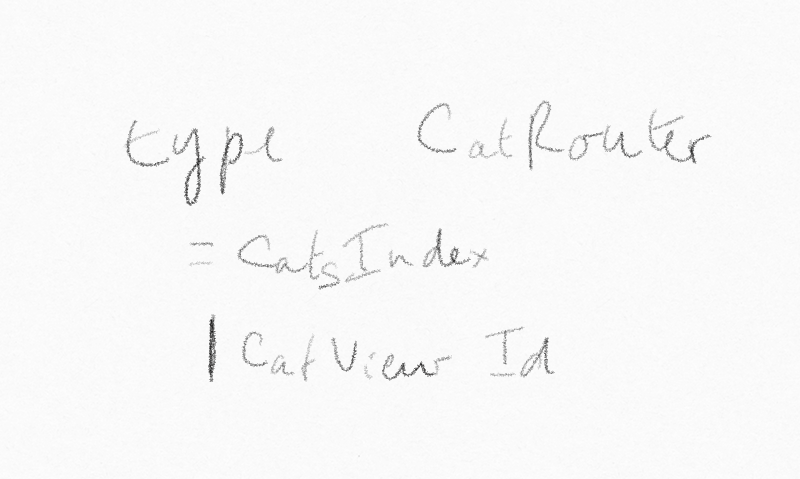 type CatRouter
= CatsIndex
| CatView Id